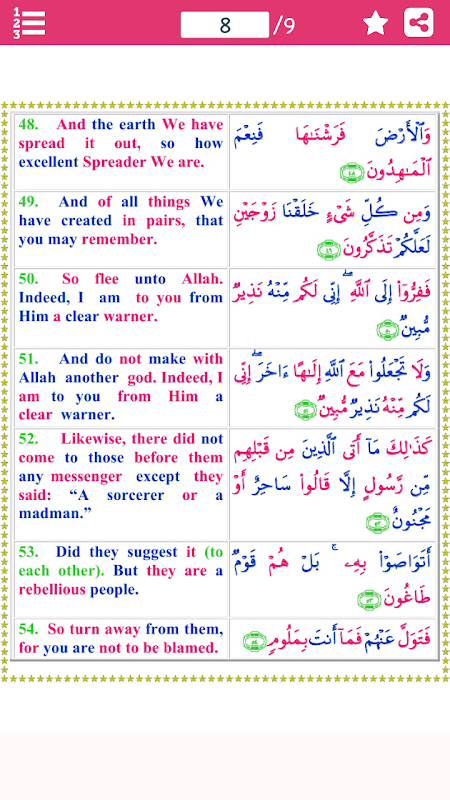 1
2
3
8
/9
48. And the earth We have
spread it out, so how
excellent Spreader We are.
وَٱلْأَرْضَ فَرَشْنَـٰهَا فَنِعْمَ
ٱلْمَـٰهِدُونَ ٤٨
49. And of all things We
have created in pairs, that
you may remember.
وَمِن كُلِّ شَىْءٍ خَلَقْنَا زَوْجَيْنِ
لَعَلَّكُمْ تَذَكَّرُونَ ٤٩
50. So flee unto Allah.
Indeed, I am to you from
Him a clear warner.
فَفِرُّوٓا۟ إِلَى ٱللَّهِ ۖ إِنِّى لَكُم مِّنْهُ نَذِيرٌ
مُّبِينٌ ٥٠
51. And do not make with
Allah another god. Indeed, I
am to you from Him a
clear warner.
وَلَا تَجْعَلُوا۟ مَعَ ٱللَّهِ إِلَـٰهًا ءَاخَرَ ۖ إِنِّى
لَكُم مِّنْهُ نَذِيرٌ مُّبِينٌ ٥١
52. Likewise, there did not
come to those before them
any messenger except they
said: “A sorcerer or a
madman.”
كَذَٰلِكَ مَآ أَتَى ٱلَّذِينَ مِن قَبْلِهِم
مِّن رَّسُولٍ إِلَّا قَالُوا۟ سَاحِرٌ أَوْ
مَجْنُونٌ ٥٢
53. Did they suggest it (to
each other). But they are a
rebellious people.
أَتَوَاصَوْا۟ بِهِۦ ۚ بَلْ هُمْ قَوْمٌ
طَاغُونَ ٥٣
54. So turn away from them,
for you are not to be blamed.
فَتَوَلَّ عَنْهُمْ فَمَآ أَنتَ بِمَلُومٍ ٥٤